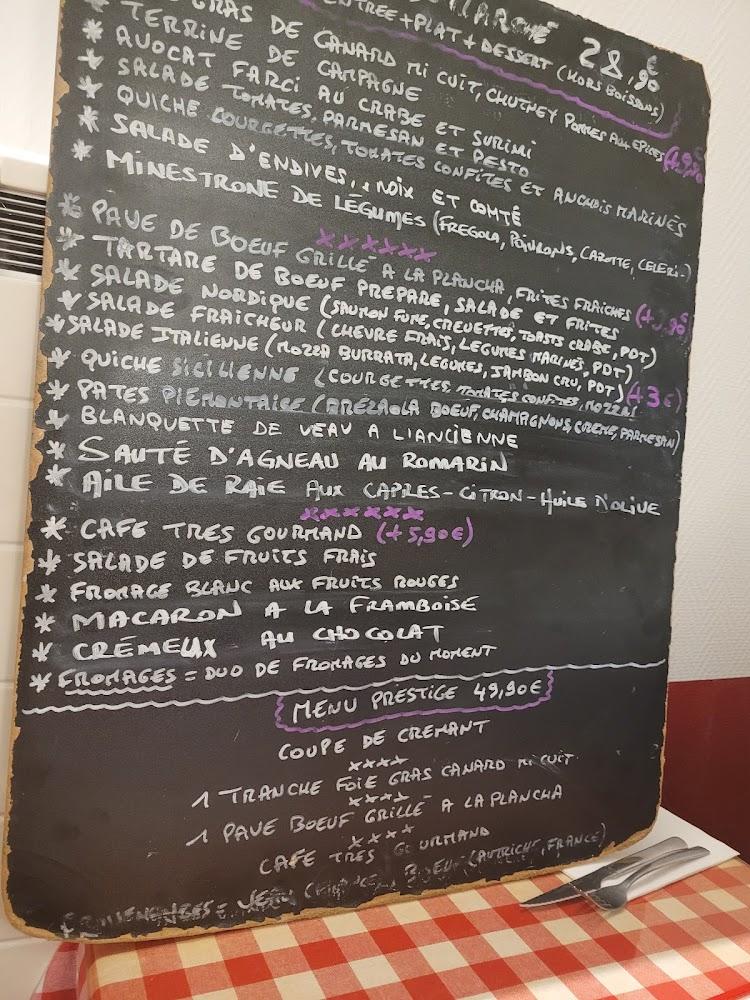 MARCHÉ 28,90€
ENTREE+PLAT+DESSERT (HORS BOISSONS)
GRAS DE CANARD MI CUIT, CHUTNEY POMMES AUX EPICES
* TERRINE DE CAMPAGNE
* AVOCAT FARCI AU CRABE ET SURIMI
* SALADE TOMATES, PARMESAN ET PESTO
* QUICHE COURGETTES, TOMATES CONFITES ET ANCHOIS MARINÉS
* SALADE D'ENDIVES, NOIX ET COMTÉ
* MINESTRONE DE LÉGUMES (FREGOLA, POIVRONS, CAROTTE, CELERI-)
xxxxxx
* PAVE DE BOEUF GRILLÉ A LA PLANCHA, FRITES FRAICHES
* TARTARE DE BOEUF PREPARE, SALADE ET FRITES
* SALADE NORDIQUE (SAUMON FUME, CREVETTES, TOASTS CRABE, PDT)
* SALADE FRAICHEUR (CHEVRE FRAIS, LEGUMES MARINÉS, PDT)
* SALADE ITALIENNE (MOZZA BURRATA, LEGUMES, JAMBON CRU, PDT) (+3€)
* QUICHE SICILIENNE (COURGETTES, TOMATES CONFITES, MOZZA)
* PATES PIEMONTAISE (BREZAOLA BOEUF, CHAMPAGNONS, CREME, PARMESAN)
* BLANQUETTE DE VEAU A L'ANCIENNE
* SAUTÉ D'AGNEAU AU ROMARIN
* AILE DE RAIE AUX CAPRES-CITRON-HUILE D'OLIVE
xxxxxx
* CAFE TRES GOURMAND (+5,90€)
* SALADE DE FRUITS FRAIS
* FROMAGE BLANC AUX FRUITS ROUGES
* MACARON A LA FRAMBOISE
* CRÉMEUX AU CHOCOLAT
* FROMAGES = DUO DE FROMAGES DU MOMENT
MENU PRESTIGE 49,90€
COUPE DE CREMANT
xxxx
1 TRANCHE FOIE GRAS CANARD MI CUIT
xxxx
1 PAVE BOEUF GRILLÉ A LA PLANCHA
xxxx
CAFE TRES GOURMAND
BOEUF (AUTRICHE, FRANCE)